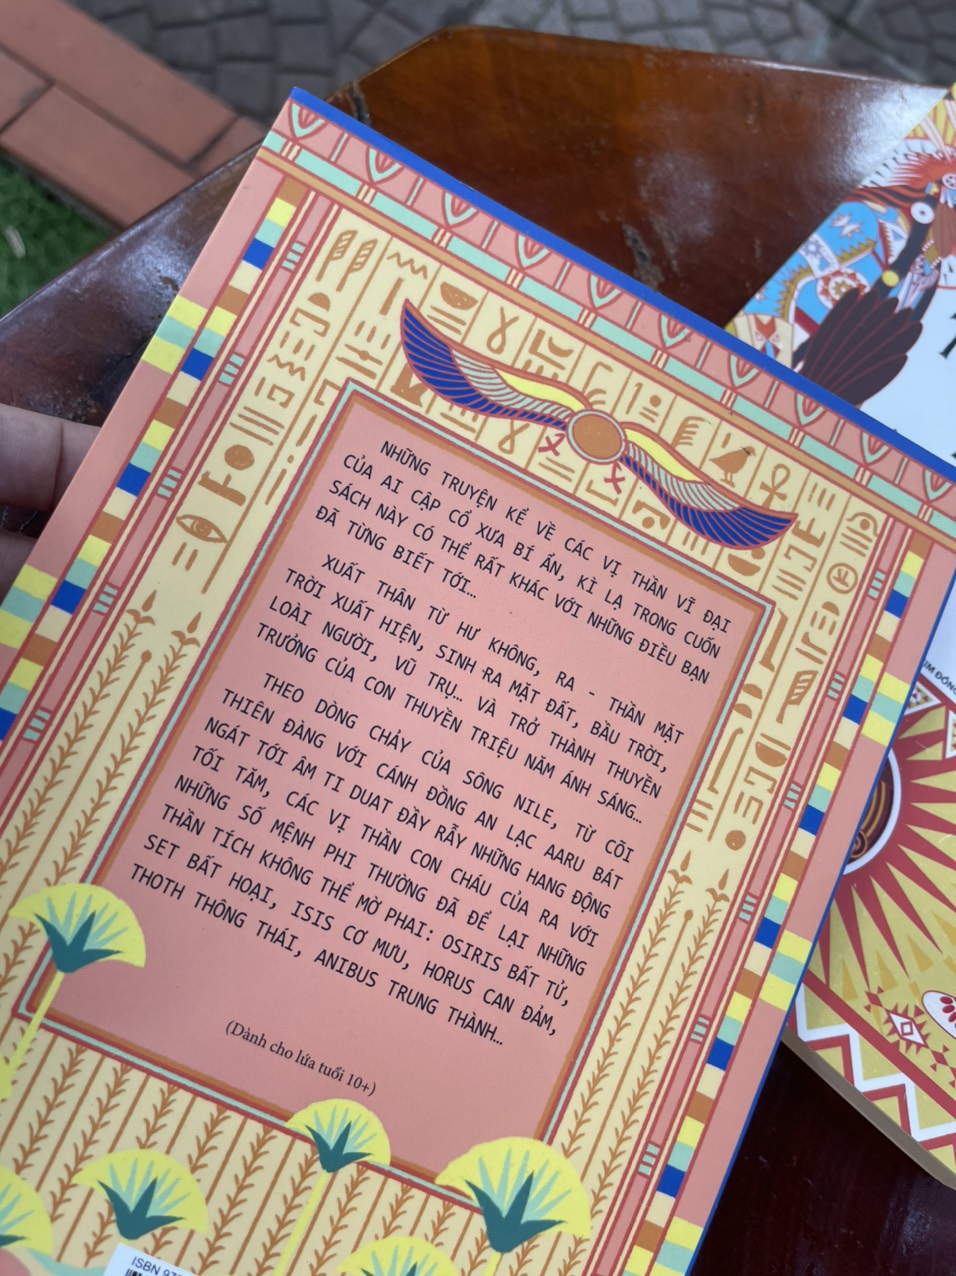 NHỮNG TRUYỆN KỂ VỀ CÁC VỊ THẦN VĨ ĐẠI
CỦA AI CẬP CỔ XƯA BÍ ẨN, KÌ LẠ TRONG CUỐN
SÁCH NÀY CÓ THỂ RẤT KHÁC VỚI NHỮNG ĐIỀU BẠN
ĐÃ TỪNG BIẾT TỚI...
XUẤT THÂN TỪ HƯ KHÔNG, RA - THẦN MẶT
TRỜI XUẤT HIỆN, SINH RA MẶT ĐẤT, BẦU TRỜI,
LOÀI NGƯỜI, VŨ TRỤ… VÀ TRỞ THÀNH THUYỀN
TRƯỞNG CỦA CON THUYỀN TRIỆU NĂM ÁNH SÁNG…
THEO DÒNG CHẢY CỦA SÔNG NILE, TỪ CÕI
THIÊN ĐÀNG VỚI CÁNH ĐỒNG AN LẠC AARU BÁT
NGÁT TỚI ÂM TI DUAT ĐẦY RẪY NHỮNG HANG ĐỘNG
TỐI TĂM, CÁC VỊ THẦN CON CHÁU CỦA RA VỚI
NHỮNG SỐ MỆNH PHI THƯỜNG ĐÃ ĐỂ LẠI NHỮNG
THẦN TÍCH KHÔNG THỂ MỜ PHAI: OSIRIS BẤT TỬ,
SET BẤT HOẠI, ISIS CƠ MƯU, HORUS CAN ĐẢM,
THOTH THÔNG THÁI, ANIBUS TRUNG THÀNH…
(Dành cho lứa tuổi 10+)
ISBN